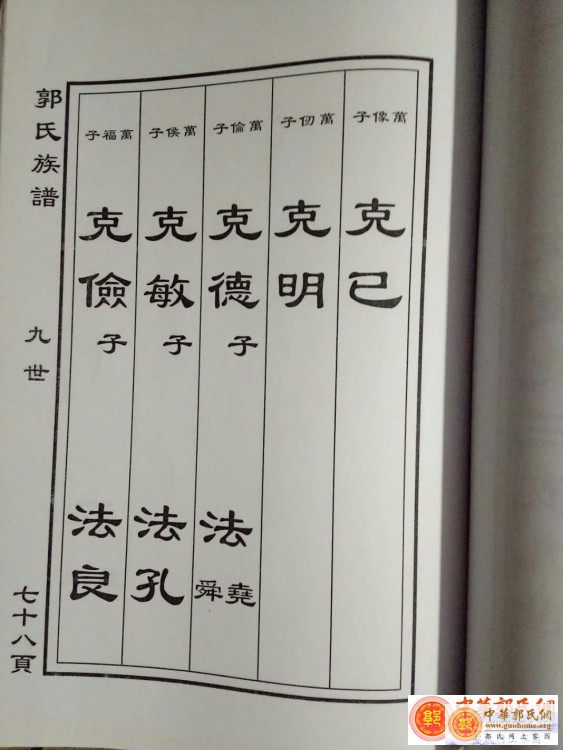 萬像子
克己
萬仞子
克明
萬倫子
克德子
法堯舜
萬侯子
克敏子
法孔
萬福子
克儉子
法良
郭氏族譜
九世
七十八頁
中華郭氏網
www.guohome.org
郭氏网上家园